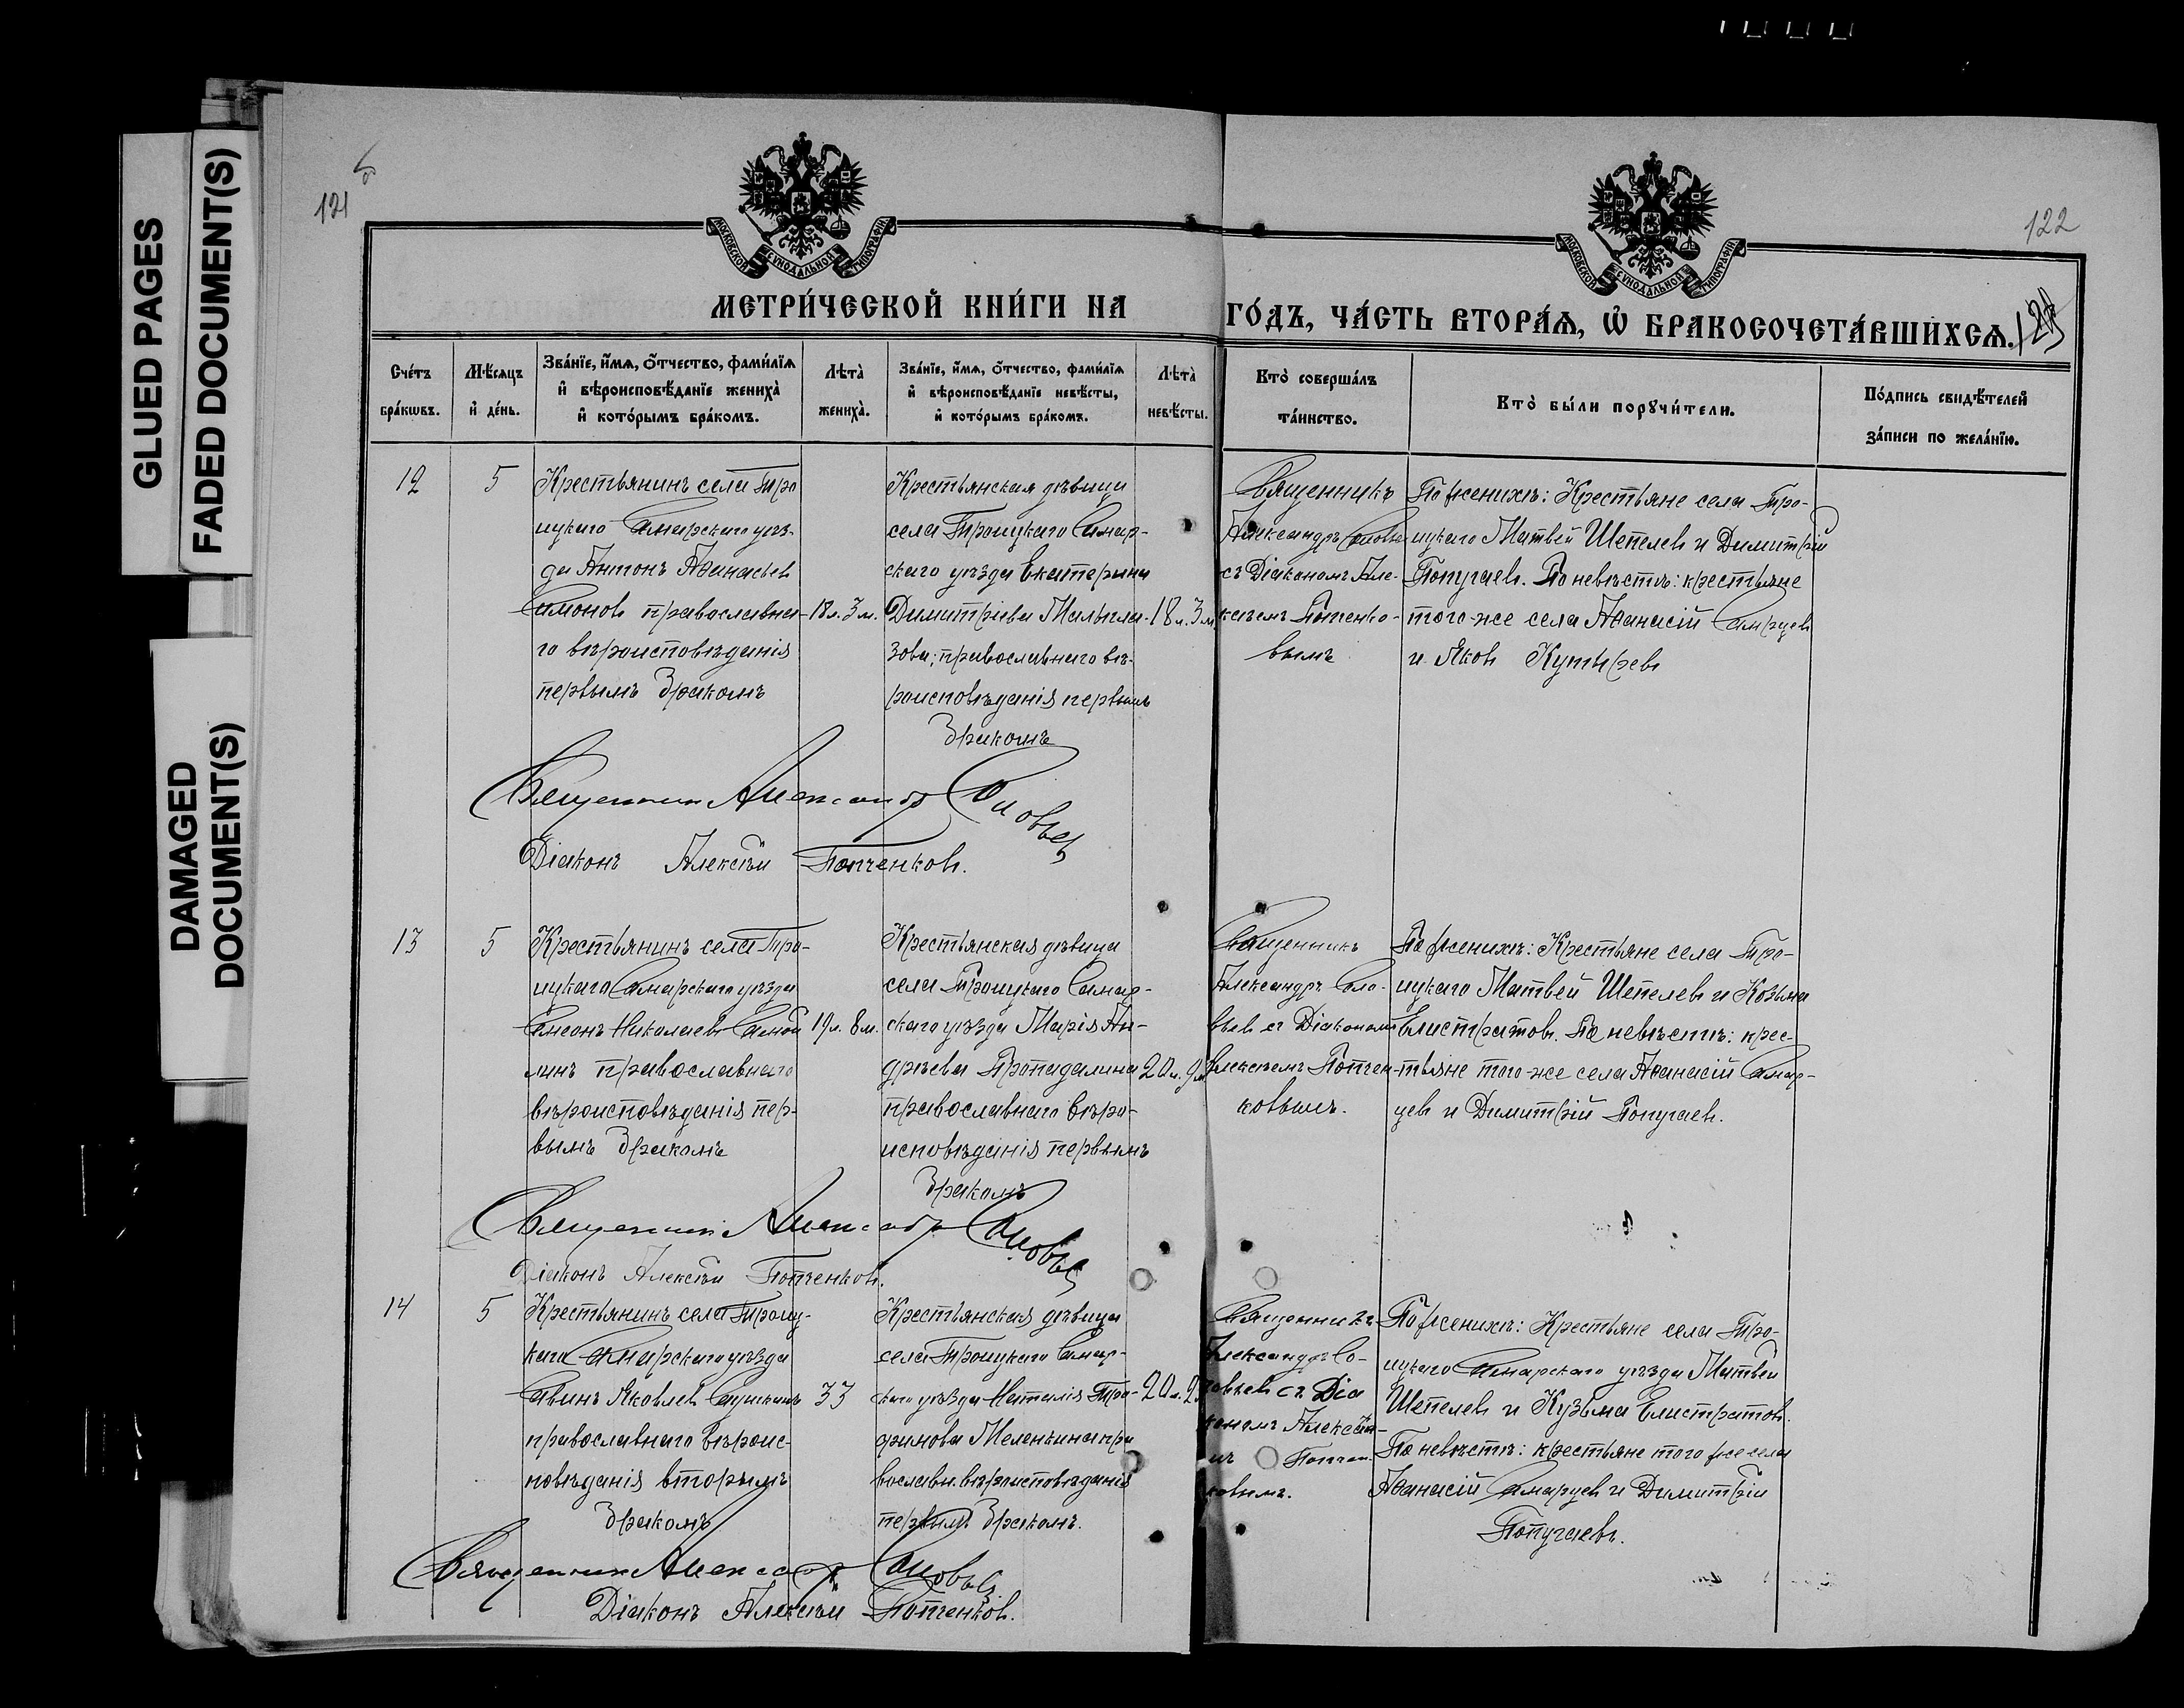 GLUED PAGES
FADED DOCUMENT(S)
DAMAGED
DOCUMENT(S)
121
122
МОСКОВСКОЙ СѴНОДАЛЬНОЙ ТИПОГРАФІИ
МОСКОВСКОЙ СѴНОДАЛЬНОЙ ТИПОГРАФІИ
МЕТРИ́ЧЕСКОЙ КНИ́ГИ НА
ГО́ДЪ, ЧА́СТЬ ВТОРА́Ѧ, Ѽ БРАКОСОЧЕТА́ВШИХСѦ.
Сче́тъ
бра́кѡвъ.
Мѣ́сѧцъ
и҆ де́нь.
Зва́нїе, и҆́мѧ, ѻ҆́тчество, фами́лїѧ
и҆ вѣроисповѣ́данїе жениха̀
и҆ кото́рымъ бра́комъ.
Лѣта̀
жениха̀.
Зва́нїе, и҆́мѧ, ѻ҆́тчество, фами́лїѧ
и҆ вѣроисповѣ́данїе невѣ́сты,
и҆ кото́рымъ бра́комъ.
Лѣта̀
невѣ́сты.
Кто̀ соверша́лъ
та́инство.
Кто̀ бы́ли порꙋчи́тели.
По́дпись свидѣ́телей
за́писи по жела́нїю.
12
5
Крестьянинъ села Тро
ицкаго Самарскаго уѣз-
да Антонъ Аѳанасьевъ
Самоновъ православна-
го вѣроисповѣданія
первымъ бракомъ
18 л. 3 м.
Крестьянская дѣвица
села Троицкаго Самар-
скаго уѣзда Екатерина
Димитріева Малыгла-
зова; православнаго вѣ-
роисповѣданія первымъ
бракомъ
18 л. 3 м.
Священникъ
Александръ Соловьев
съ Діакономъ Але-
ксѣемъ Попченко-
вымъ
По женихѣ: Крестьяне села Тро-
ицкаго Матвей Шепелевъ и Димитрій
Попугаевъ. По невѣстѣ: крестьяне
того-же села Аѳанасій Самарцевъ
и Яковъ Кутыревъ
Священник Александр Соловьев
Діаконъ Алексѣй Попченковъ.
13
5
Крестьянинъ села Тро-
ицкаго Самарскаго уѣзда
Симеонъ Николаевъ
православнаго
вѣроисповѣданія пер-
вымъ бракомъ
19 л. 8 м.
Крестьянская дѣвица
села Троицкаго Самар-
скаго уѣзда Марія Ан-
дреева Пропадалина
православнаго вѣро-
исповѣданія первымъ
бракомъ
20 л. 9 м.
Священникъ
Александръ Соло-
вьевъ съ Діакономъ
Алексѣемъ Попчен-
ковымъ.
По женихѣ: Крестьяне села Тро-
ицкаго Матвей Шепелевъ и Козьма
Елистратовъ. По невѣстѣ: крес-
тьяне того-же села Аѳанасій Самар-
цевъ и Димитрій Попугаевъ.
Священник Александр Соловьев
Діаконъ Алексѣй Попченковъ.
14
5
Крестьянинъ села Троиц-
каго Самарскаго уѣзда
Савинъ Яковлевъ Сушкинъ
православнаго вѣроис-
повѣданія вторымъ
бракомъ
33
Крестьянская дѣвица
села Троицкаго Самар-
скаго уѣзда Наталія Тро-
фимова Меленкина пра
вославн. вѣроисповѣданія
первымъ бракомъ.
20 л.
Священникъ
Александръ Со-
ловьевъ съ Діа
кономъ Алексѣе-
мъ Попчен-
ковымъ.
По женихѣ: Крестьяне села Тро-
ицкаго Самарскаго уѣзда Матвей
Шепелевъ и Кузьма Елистратовъ.
По невѣстѣ: крестьяне того же села
Аѳанасій Самарцевъ и Димитрій
Попугаевъ.
Священник Александр Соловьев
Діаконъ Алексѣй Попченковъ.